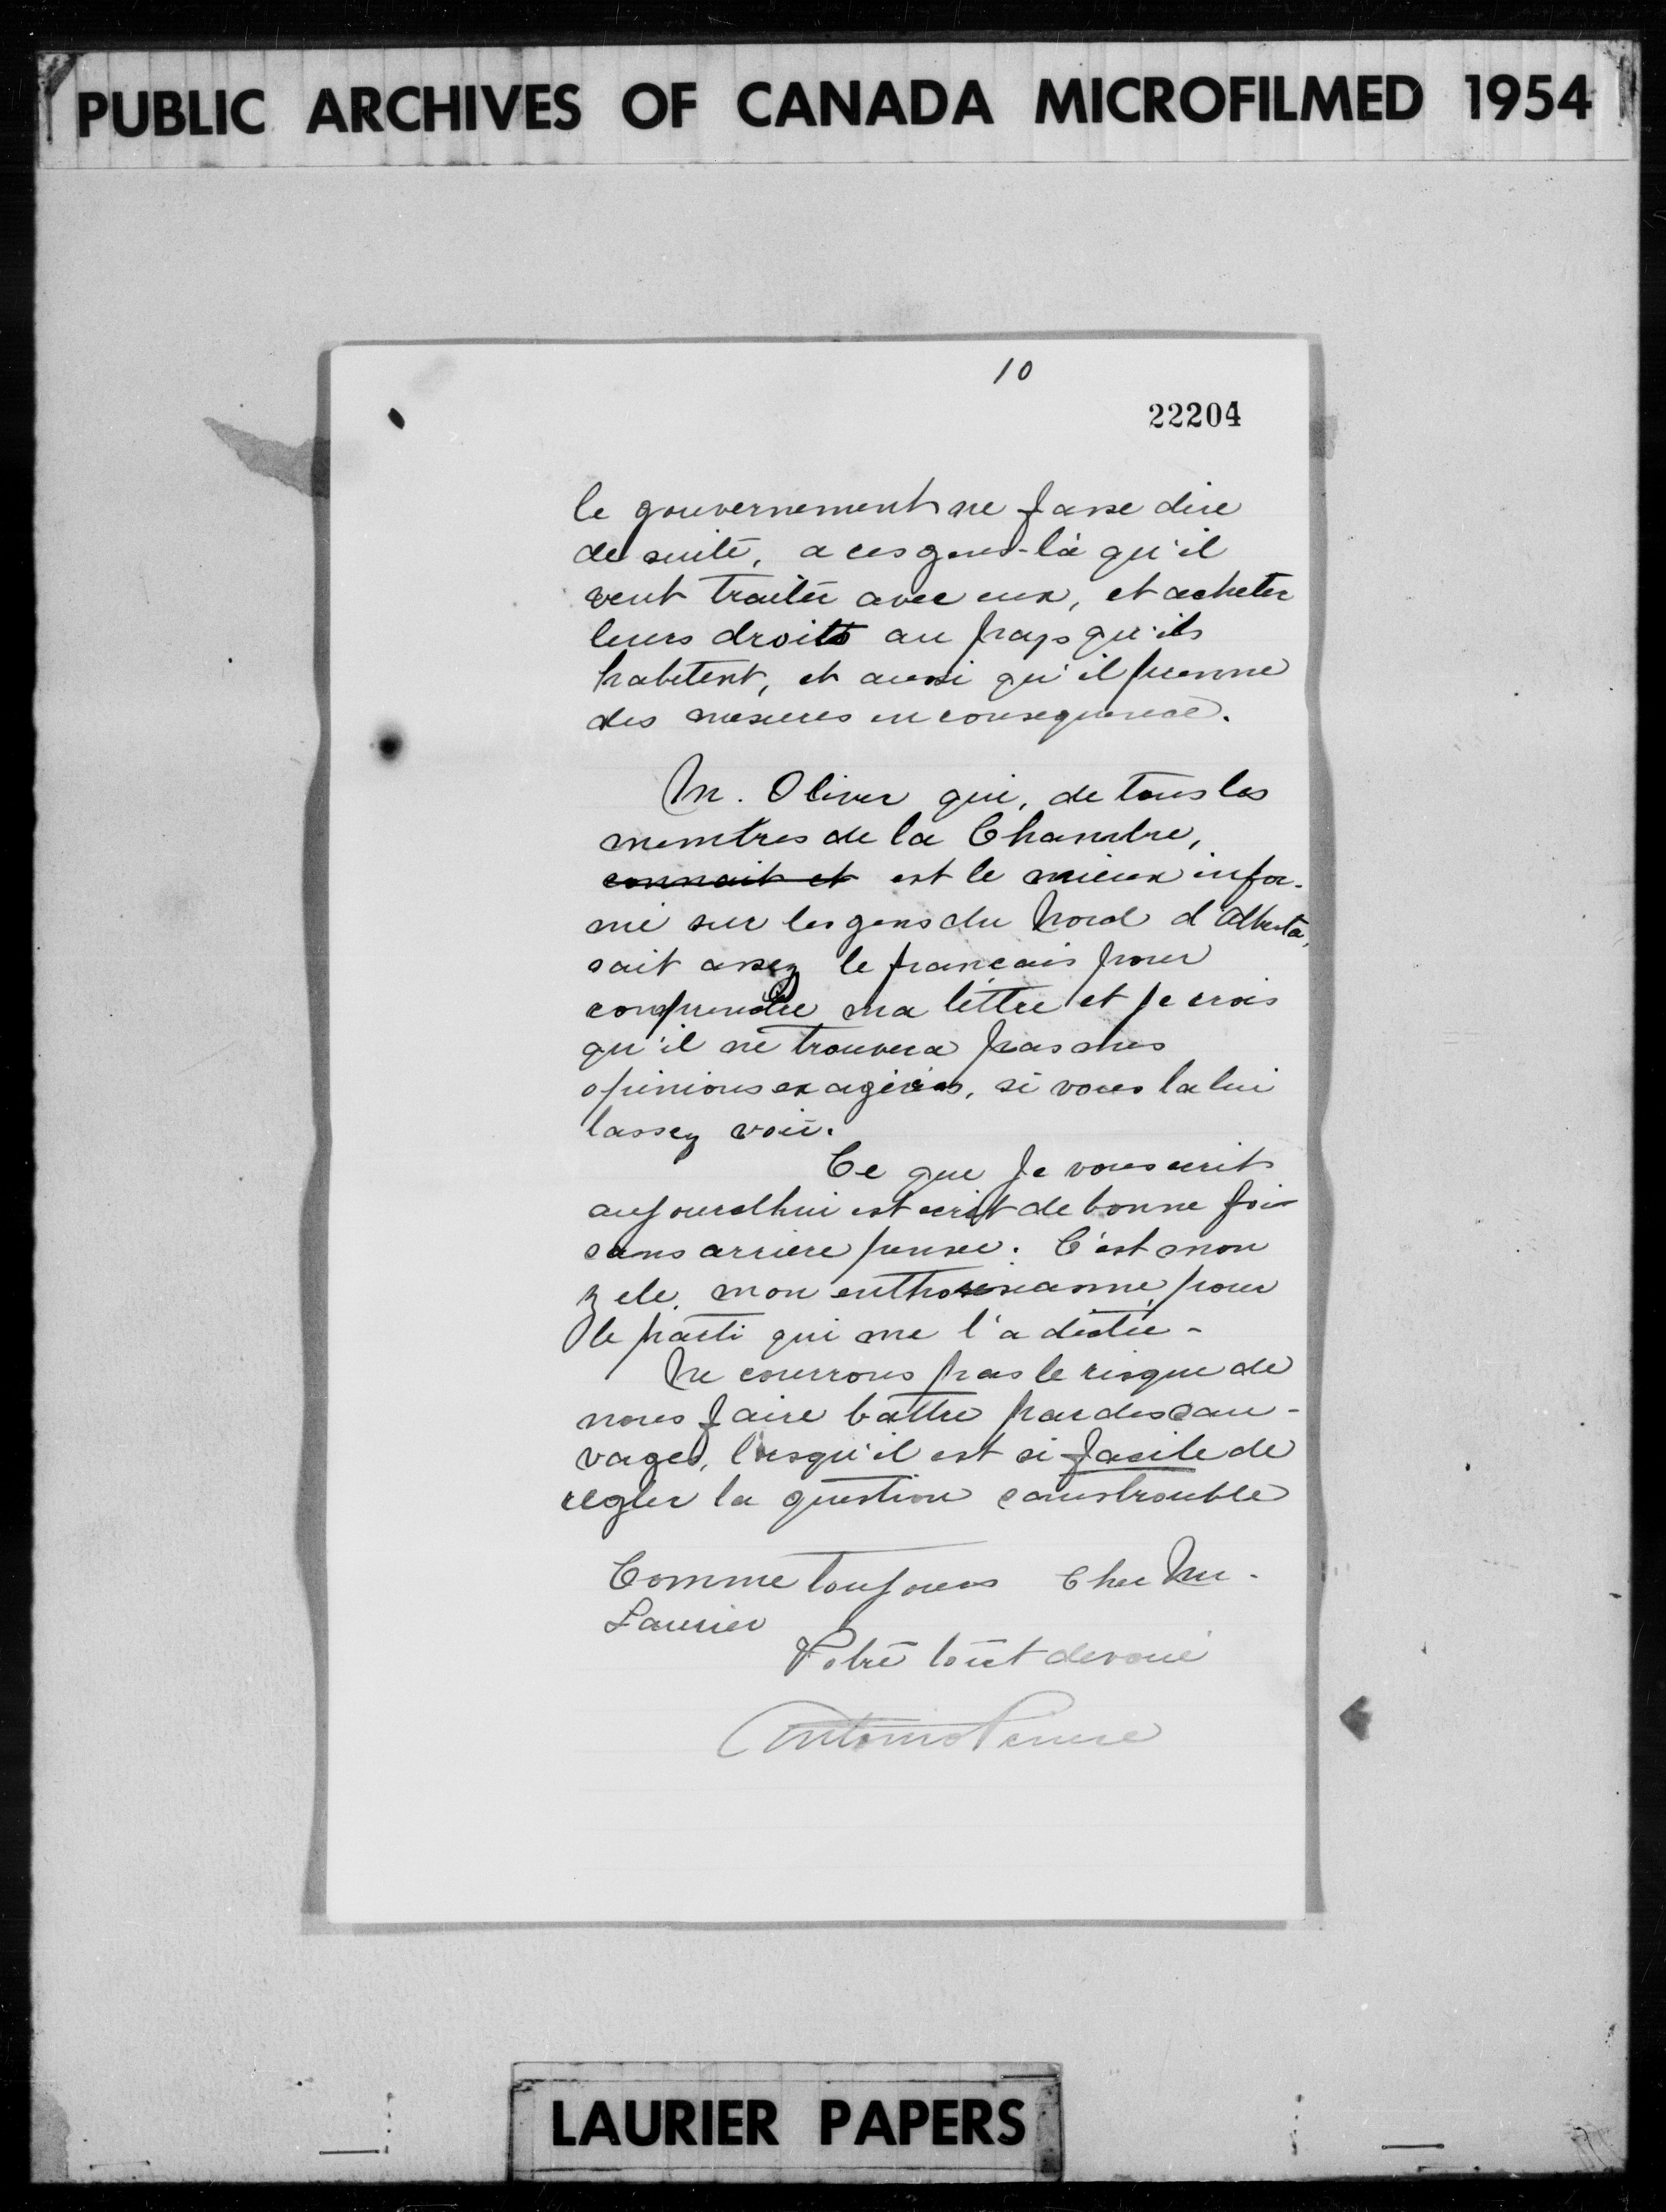 PUBLIC ARCHIVES OF CANADA MICROFILMED 1954
10
22204
le gouvernement ne fasse dire
de suite, a ces gens-là qu'il
veut traiter avec eux, et acheter
leurs droits au pays qu'ils
habitent, et aussi qu'il prenne
des mesures en consequence.
M. Oliver qui, de tous les
membres de la Chambre,
connait et est le mieux infor-
mé sur les gens du Nord d'Alberta,
sait assez le français pour
comprendre ma lettre et je crois
qu'il ne trouvera pas mes
opinions exagérées, si vous la lui
lassez voir.
Ce que je vous ecrit
aujourdhui est ecrit de bonne foi
sans arriere pensee. C'est mon
zele, mon enthousiasme, pour
le parti qui me l'a dictee -
Ne courrons pas le risque de
nous faire battre par des sau-
vages, lorsqu'il est si facile de
regler la question sans trouble
Comme toujours Cher Mr.
Laurier
Votre tout devoué
Antonio
LAURIER PAPERS